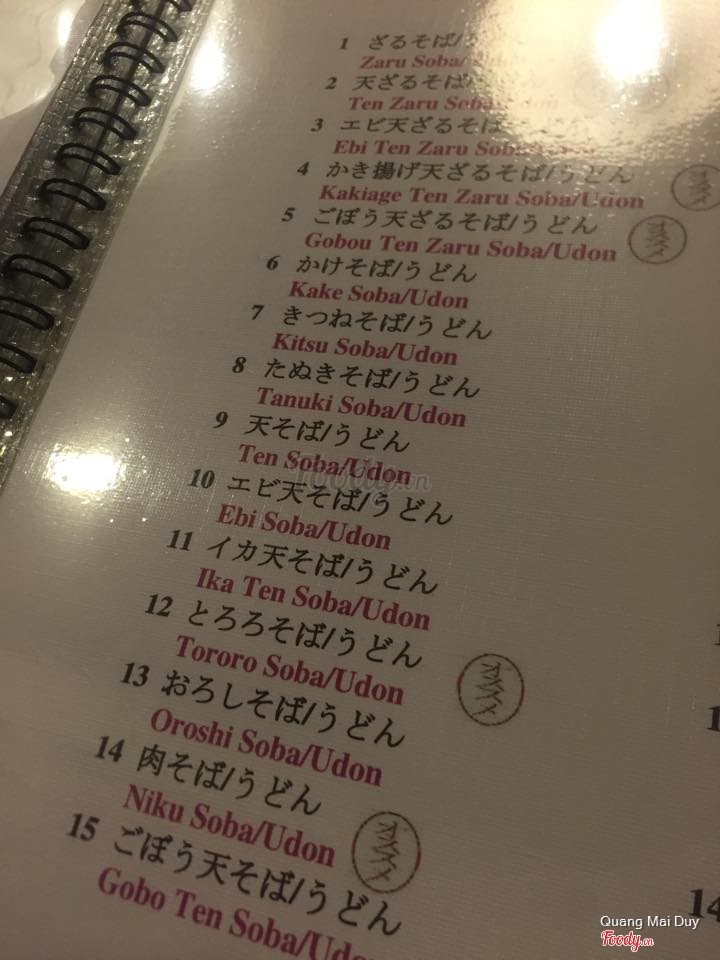 1 ざるそば/
Zaru Soba/
2 天ざるそば
Ten Zaru Soba/Udon
3 エビ天ざるそば
Ebi Ten Zaru Soba
4 かき揚げ天ざるそば/うどん
Kakiage Ten Zaru Soba/Udon
5 ごぼう天ざるそば/うどん
Gobou Ten Zaru Soba/Udon
6 かけそば/うどん
Kake Soba/Udon
7 きつねそば/うどん
Kitsu Soba/Udon
8 たぬきそば/うどん
Tanuki Soba/Udon
9 天そば/うどん
Ten Soba/Udon
10 エビ天そば/うどん
Ebi Soba/Udon
11 イカ天そば/うどん
Ika Ten Soba/Udon
12 とろろそば/うどん
Tororo Soba/Udon
13 おろしそば/うどん
Oroshi Soba/Udon
14 肉そば/うどん
Niku Soba/Udon
15 ごぼう天そば/うどん
Gobo Ten Soba/Udo
14
Foody.vn
Quang Mai Duy
Foody.vn